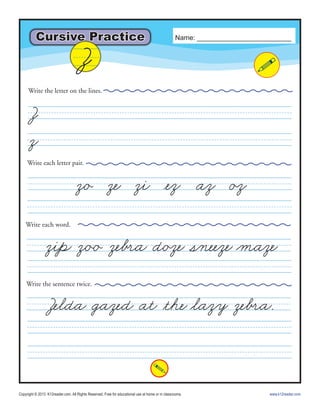 Cursive Practice
Name: ____________________________
Z
Write the letter on the lines.
Z
z
Write each letter pair.
zo ze zi ez az oz
Write each word.
zip zoo zebra doze sneeze maze
Write the sentence twice.
Zelda gazed at the lazy zebra.
Copyright © 2015 K12reader.com. All Rights Reserved. Free for educational use at home or in classrooms. www.k12reader.com